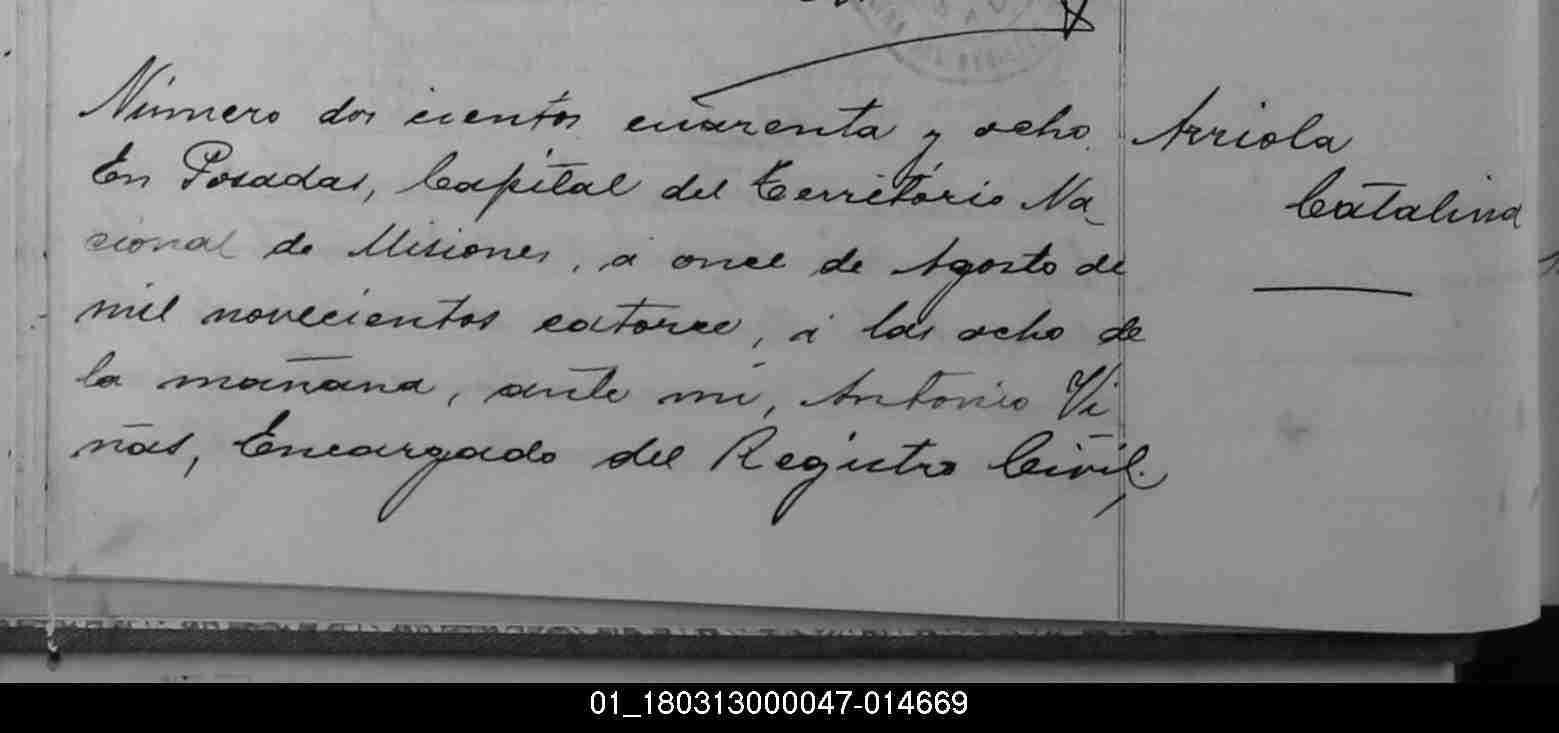 Número dos cientos cuarenta y ocho.
En Posadas, Capital del Territorio Na-
cional de Misiones, á once de Agosto de
mil novecientos catorce, á las ocho de
la mañana, ante mí, Antonio Vi-
ñas, Encargado del Registro Civil,
Arriola
Catalina
01_180313000047-014669